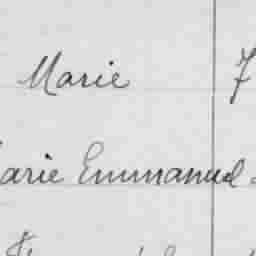 Marie 7
arie Emmanuel